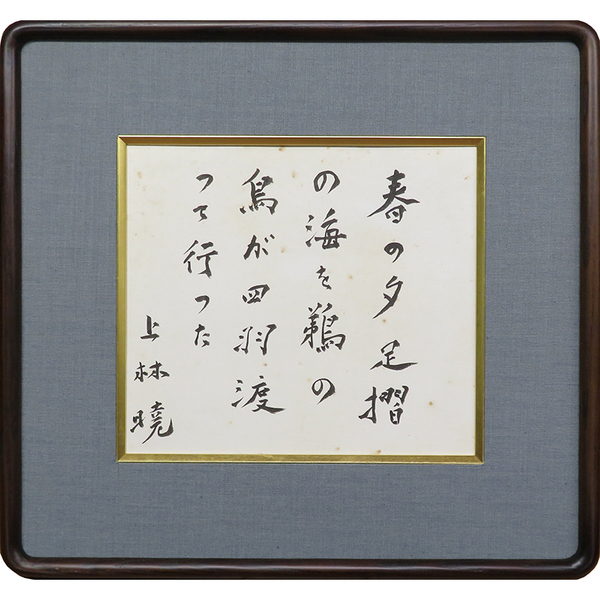 春の夕足摺
の海を鵜の
鳥が四羽渡
って行った
上林暁